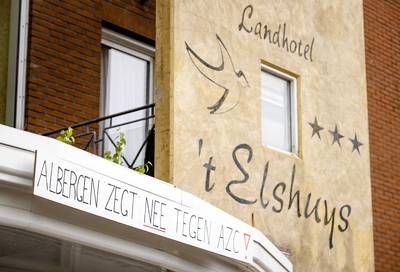 Landhotel
't Elshuys
ALBERGEN ZEGT NEE TEGEN AZC!